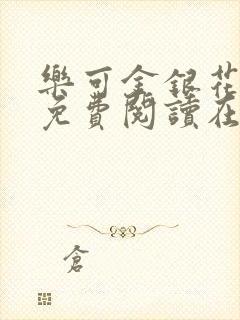 樂可金銀花
免費閱讀在
倉